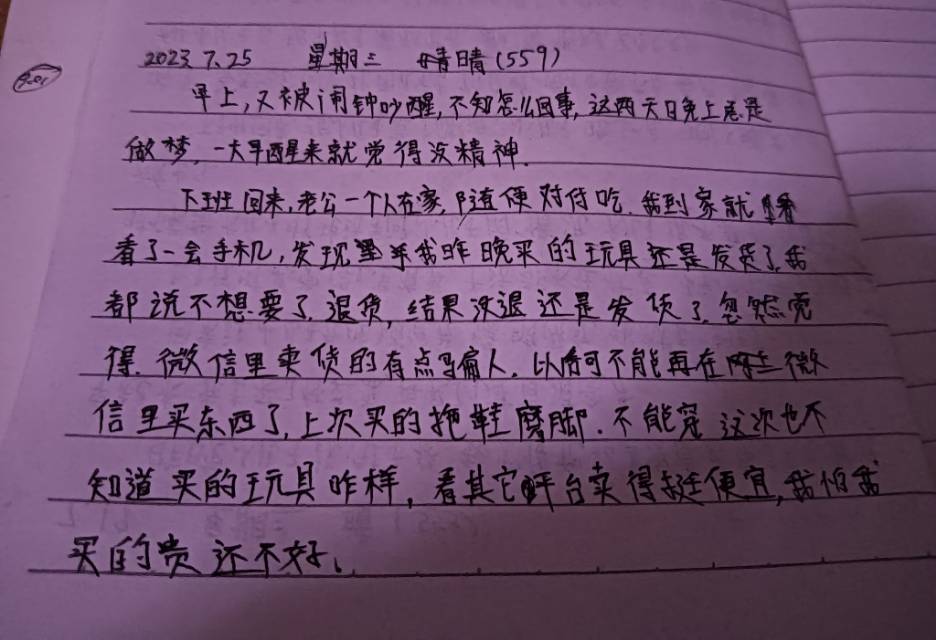 2023.7.25 星期三 晴晴(559)
早上,又被闹钟吵醒,不知怎么回事,这两天日晚上总是
做梦,一大早醒来就觉得没精神.
下班回来,老公一个人在家,随便对付吃.我到家就
看了一会手机,发现我昨晚买的玩具还是发货了,我
都说不想要了,退货,结果没退还是发货了,忽然觉
得.微信里卖货的有点骗人.以后可不能再在微
信里买东西了,上次买的拖鞋磨脚.不能穿 这次也不
知道买的玩具咋样,看其它平台卖得挺便宜,我怕我
买的贵还不好.